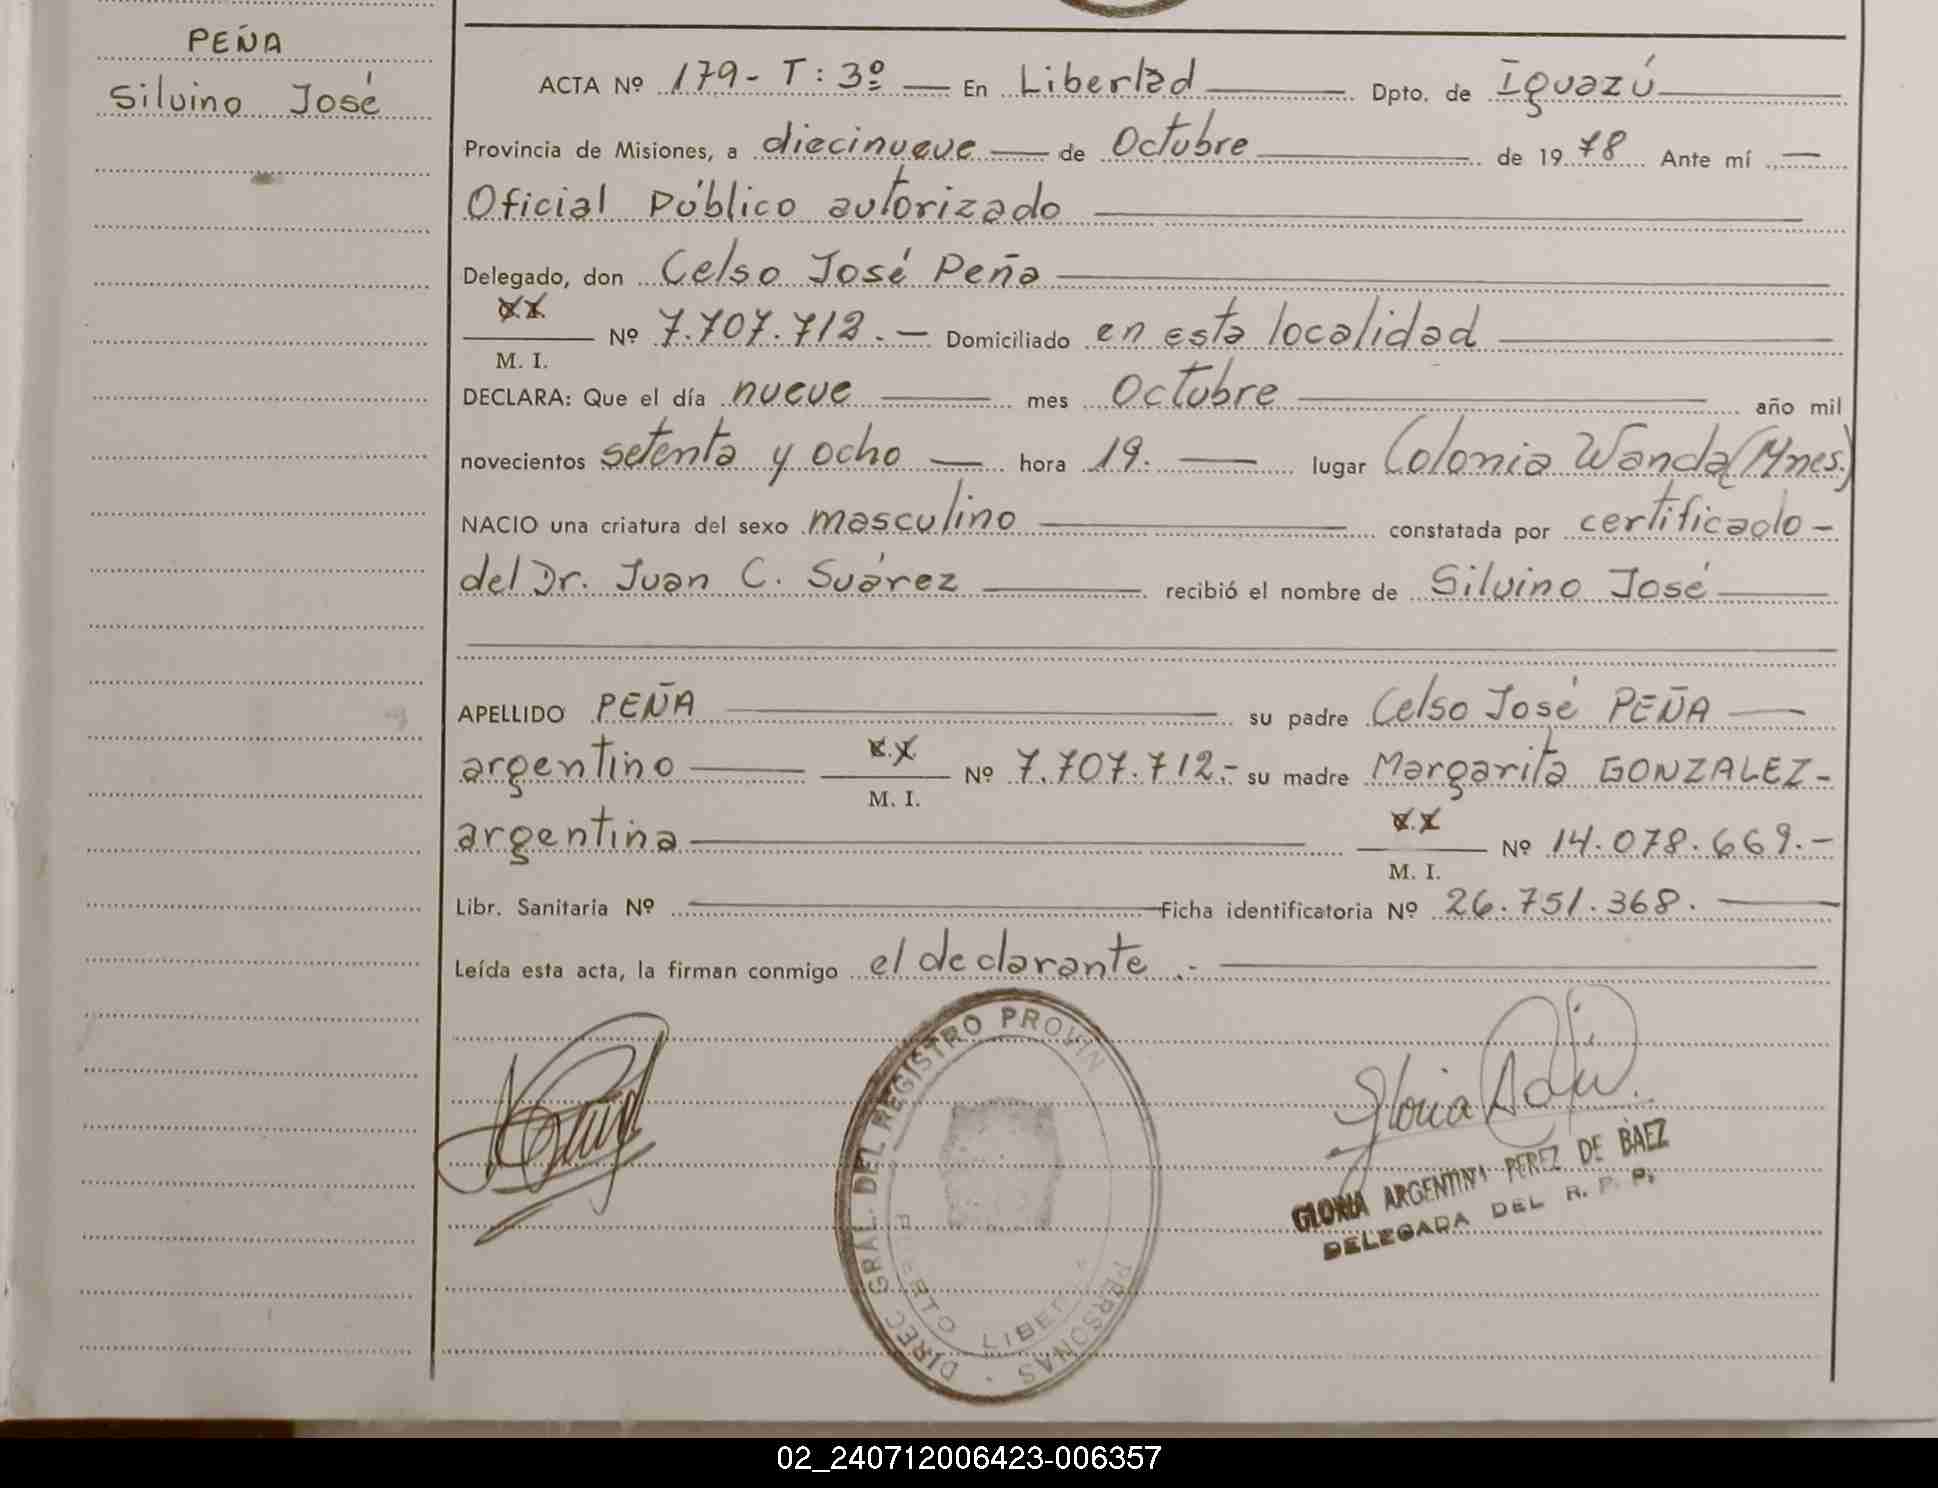 PEÑA
Silvino José
ACTA Nº 179- T: 3º — En Libertad Dpto. de Iguazú
Provincia de Misiones, a diecinueve — de Octubre de 19 78 Ante mí —
Oficial Público autorizado
Delegado, don Celso José Peña
xx
M. I. Nº 7.707.712.- Domiciliado en esta localidad
DECLARA: Que el día nueve mes Octubre año mil
novecientos setenta y ocho — hora 19. — lugar Colonia Wanda (Mnes.)
NACIO una criatura del sexo masculino constatada por certificado -
del Dr. Juan C. Suárez recibió el nombre de Silvino José
APELLIDO PEÑA su padre Celso José PEÑA —
argentino — x.x
M. I. Nº 7.707.712.- su madre Margarita GONZALEZ-
argentina x.x
M. I. Nº 14.078.669.-
Libr. Sanitaria Nº Ficha identificatoria Nº 26.751.368.
Leída esta acta, la firman conmigo el declarante.-
DIREC GRAL. DEL REGISTRO PROVIN
PERSONAS
GLORIA ARGENTINA PEREZ DE BAEZ
DELEGADA DEL R. P. P.
02_240712006423-006357